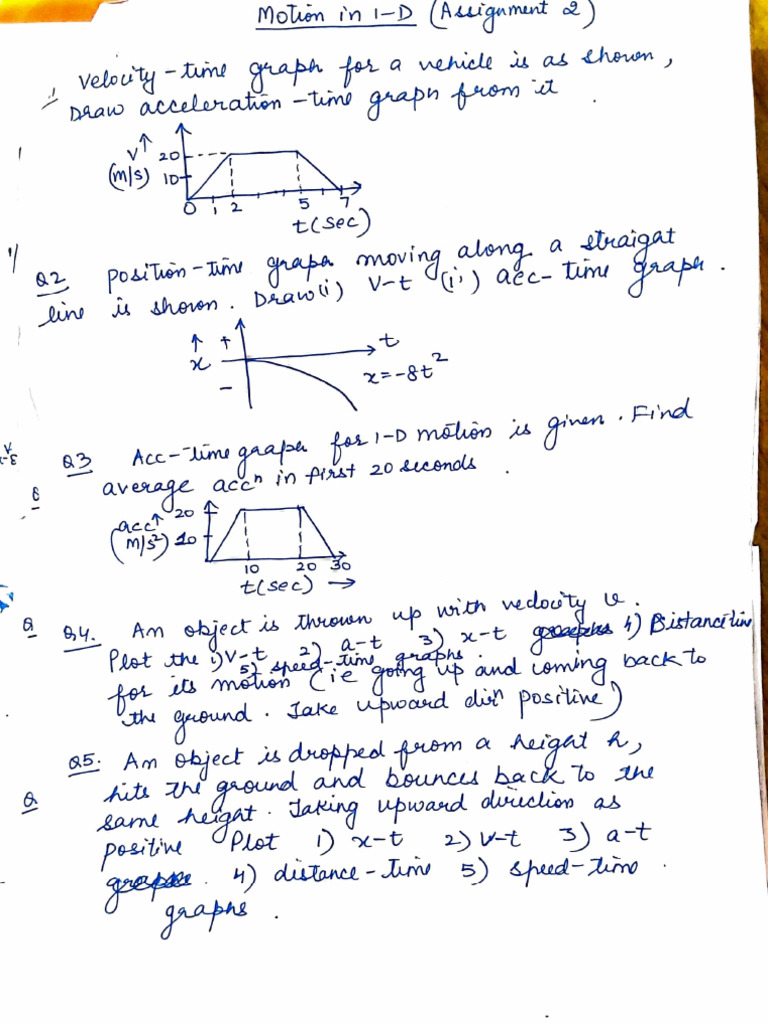 Motion in 1-D (Assignment 2)
Velocity-time graph for a vehicle is as shown,
Draw acceleration-time graph from it.
V
(m/s)
20
10
0 1 2 5 7
t(sec)
Q2 Position-time graph moving along a straigat
line is shown. Draw(i) V-t (ii) acc-time graph.
x + t
-
x=-8t²
Q3 Acc-time graph for 1-D motion is given. Find
average accⁿ in first 20 seconds.
acc
(m/s²)
20
10
10 20 30
t(sec) →
Q Q4. An object is thrown up with velocity u.
Plot the 1) V-t 2) a-t 3) x-t graphs 4) Distancetim
5) speed-time graphs
for its motion (ie going up and coming back to
the ground. Take upward dirⁿ positive)
Q5. An object is dropped from a height h,
Q hits the ground and bounces back to the
same height. Taking upward direction as
positive Plot 1) x-t 2) v-t 3) a-t
graphs. 4) distance-time 5) speed-time.
graphs.